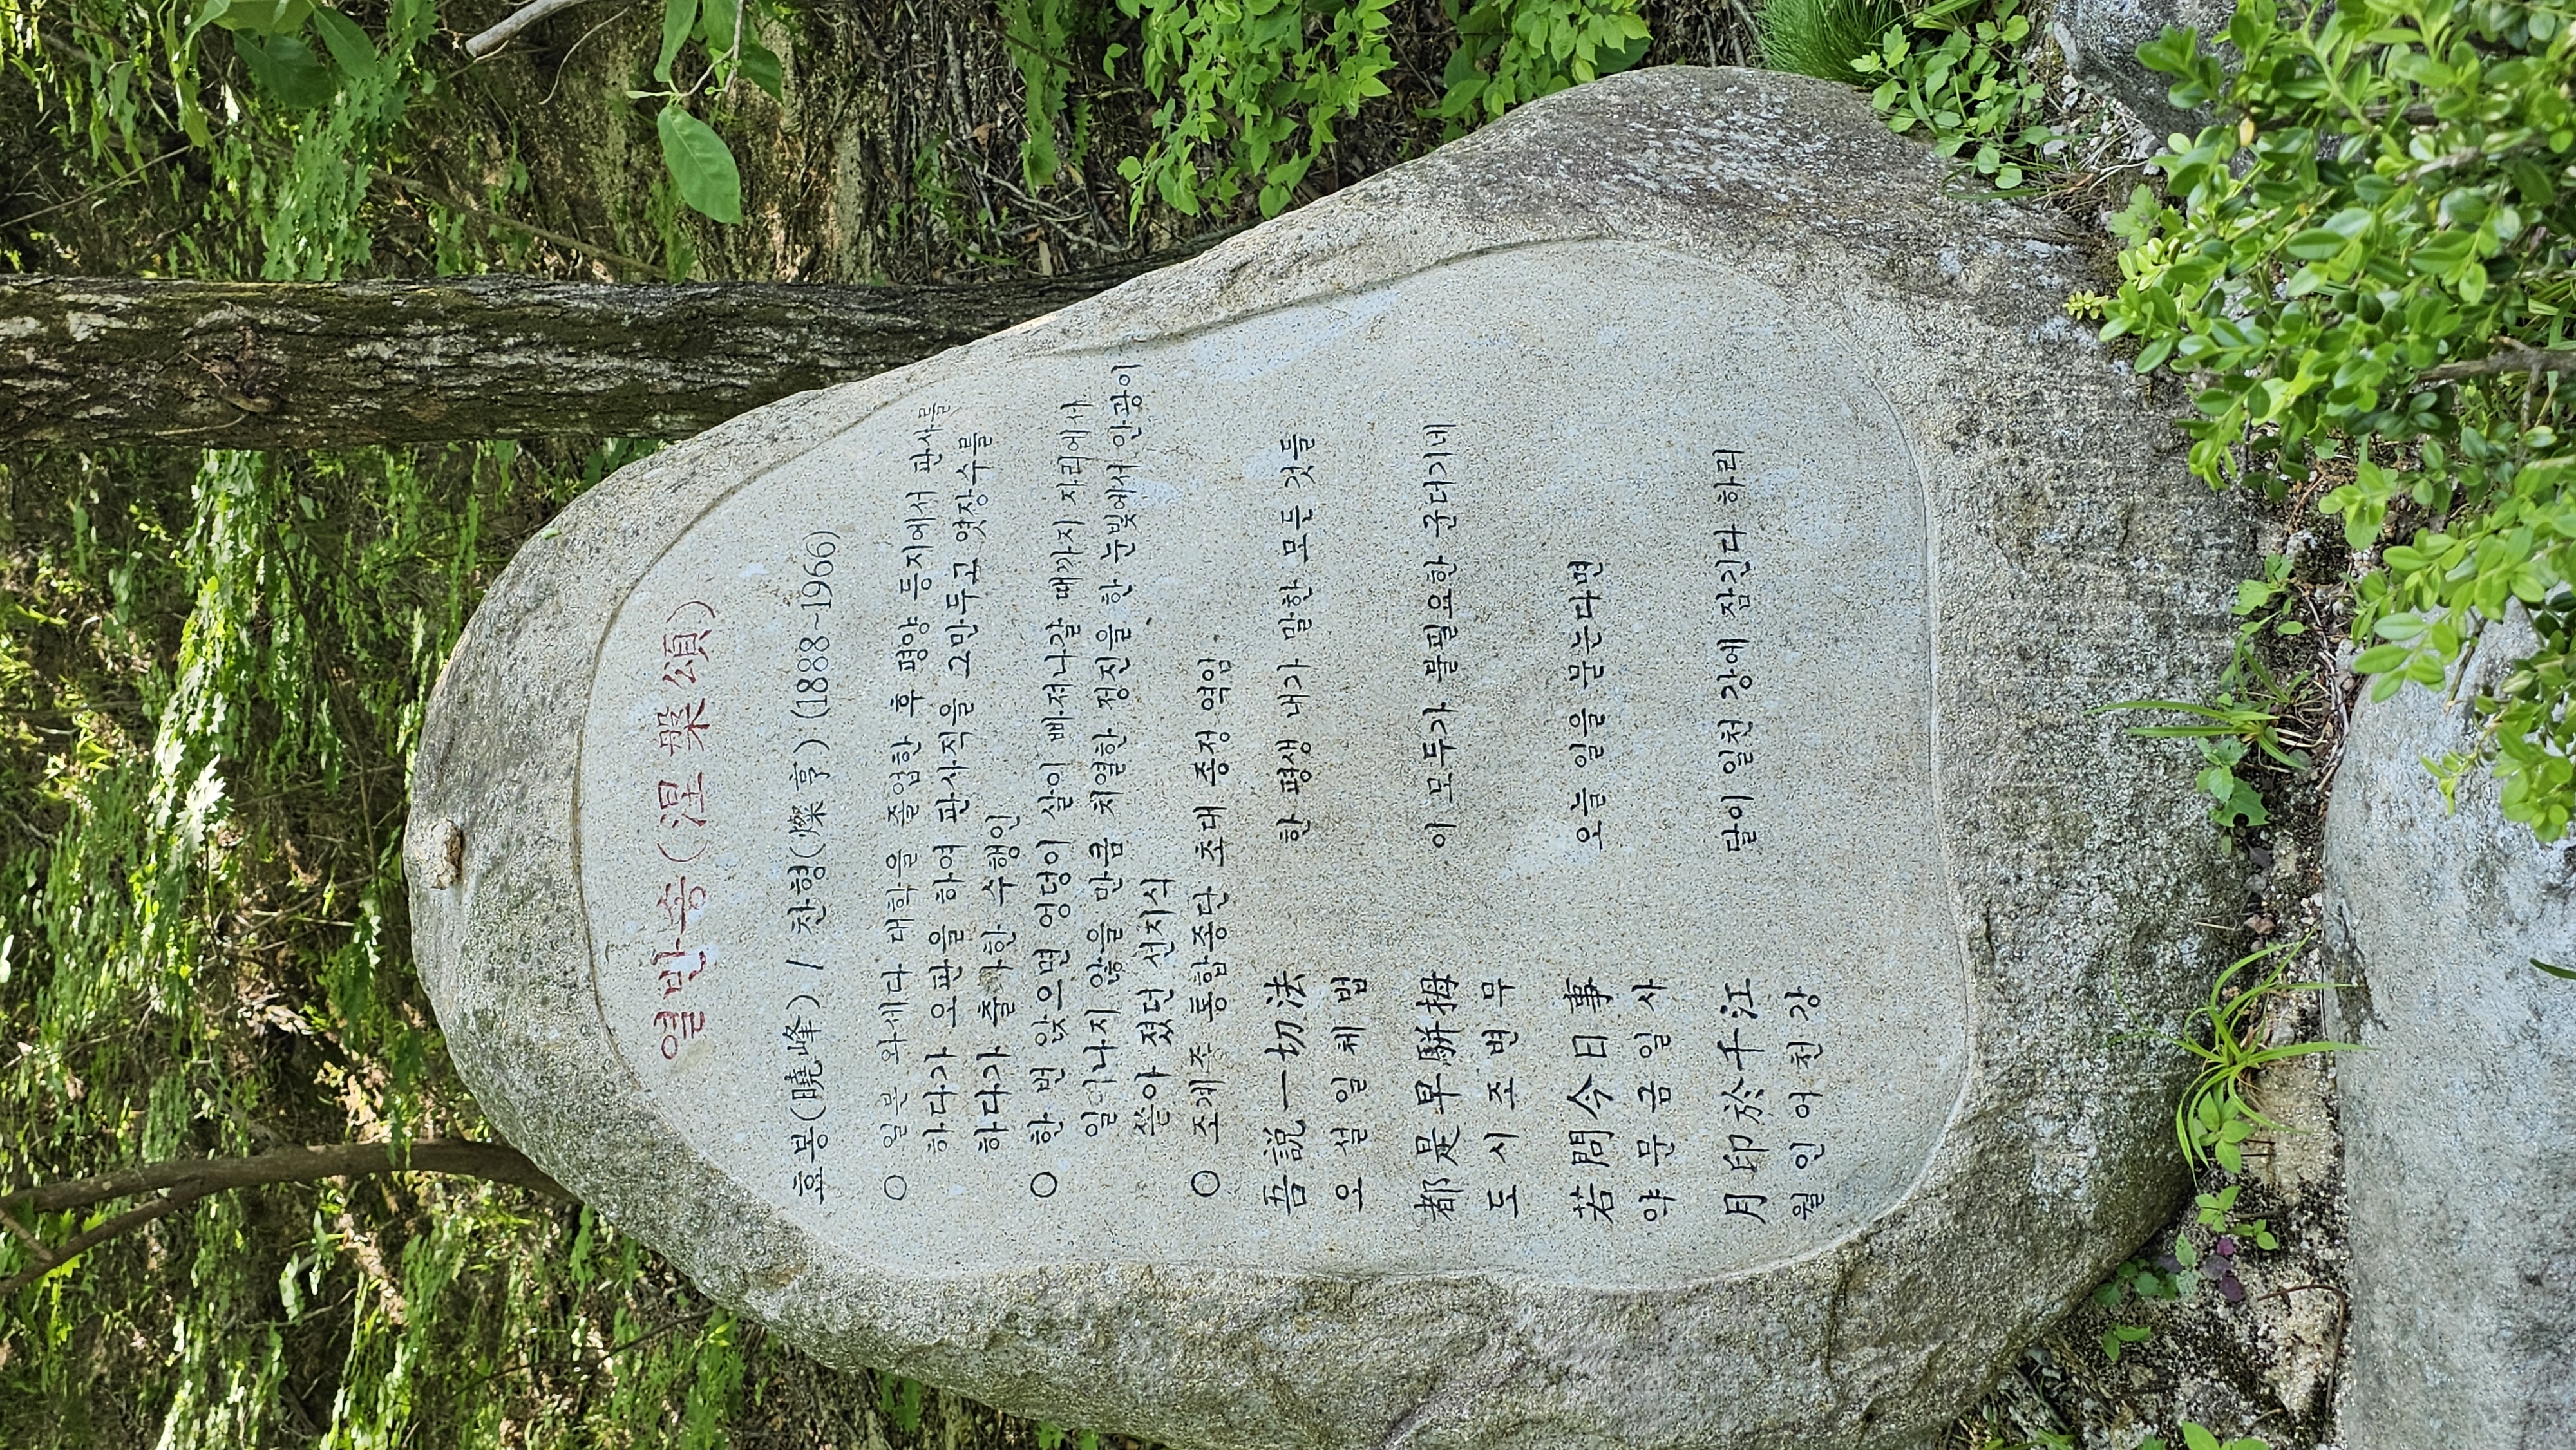 열반송(涅槃頌)
효봉(曉峰) / 찬형(燦亨) (1888~1966)
○ 일본 와세다 대학을 졸업한 후 평양 등지에서 판사를
하다가 오판을 하여 판사직을 그만두고 엿장수를
하다가 출가한 수행인
○ 한 번 앉으면 엉덩이 살이 빠져나갈 때까지 자리에서
일어나지 않을 만큼 치열한 정진을 한 눈빛에서 안광이
쏟아 졌던 선지식
○ 조계종 통합종단 초대 종정 역임
吾說一切法 한 평생 내가 말한 모든 것들
오설일체법
都是早騈拇 이 모두가 불필요한 군더기네
도시조변무
若問今日事 오늘 일을 묻는다면
약문금일사
月印於千江 달이 일천 강에 잠긴다 하리
월인어천강